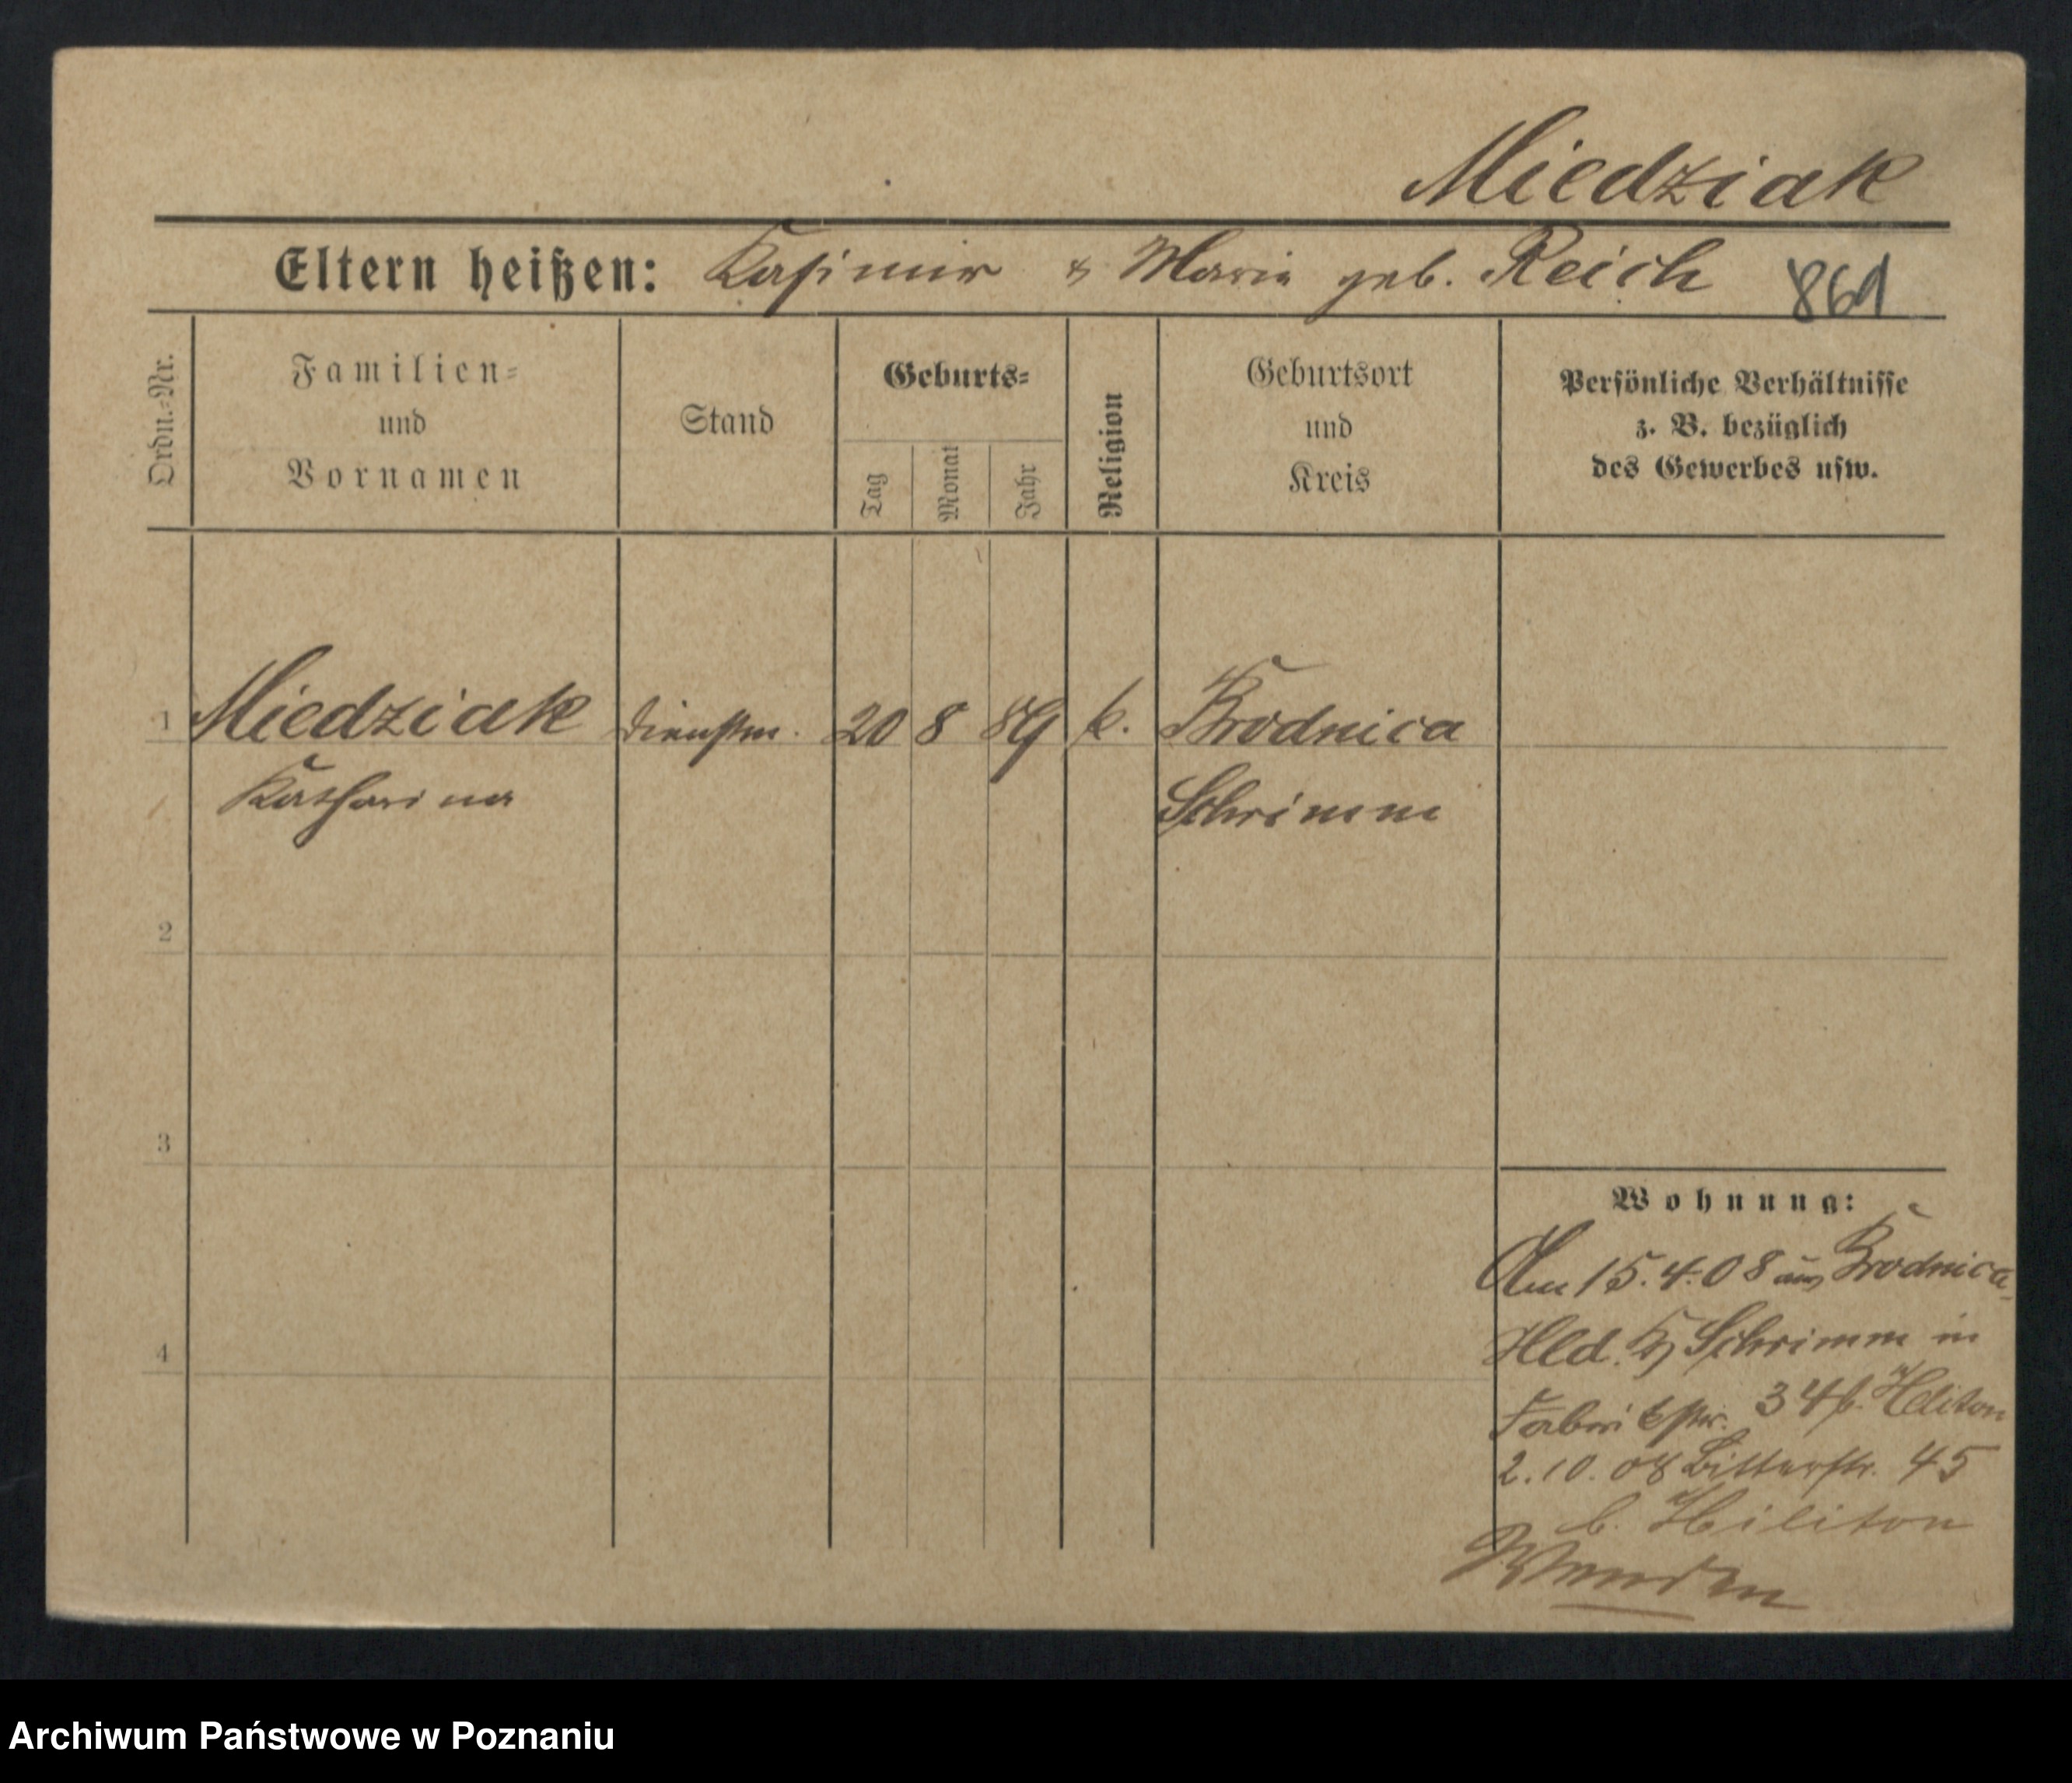 Miedziak
Eltern heißen: Kasimir & Maria geb. Reich 861
Ordn.-Nr.
Familien-
und
Vornamen
Stand
Geburts-
Tag
Monat
Jahr
Religion
Geburtsort
und
Kreis
Persönliche Verhältnisse
z. B. bezüglich
des Gewerbes usw.
1 Miedziak Dienstm. 20 8 89 k. Brodnica
Katharina Schrimm
2
3
4
Wohnung:
Am 15.4.08 aus Brodnica
Hld. Schrimm in
Fabrikstr. 34 b. Heliton
2.10.08 Bitterstr. 45
b. Hiliton